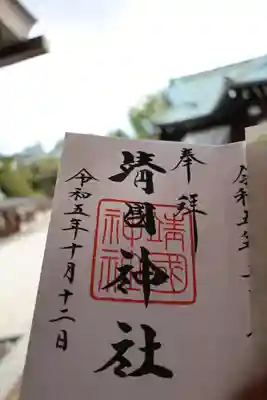 令和五年
奉拝
靖國神社
靖國
神社
令和五年十月十二日